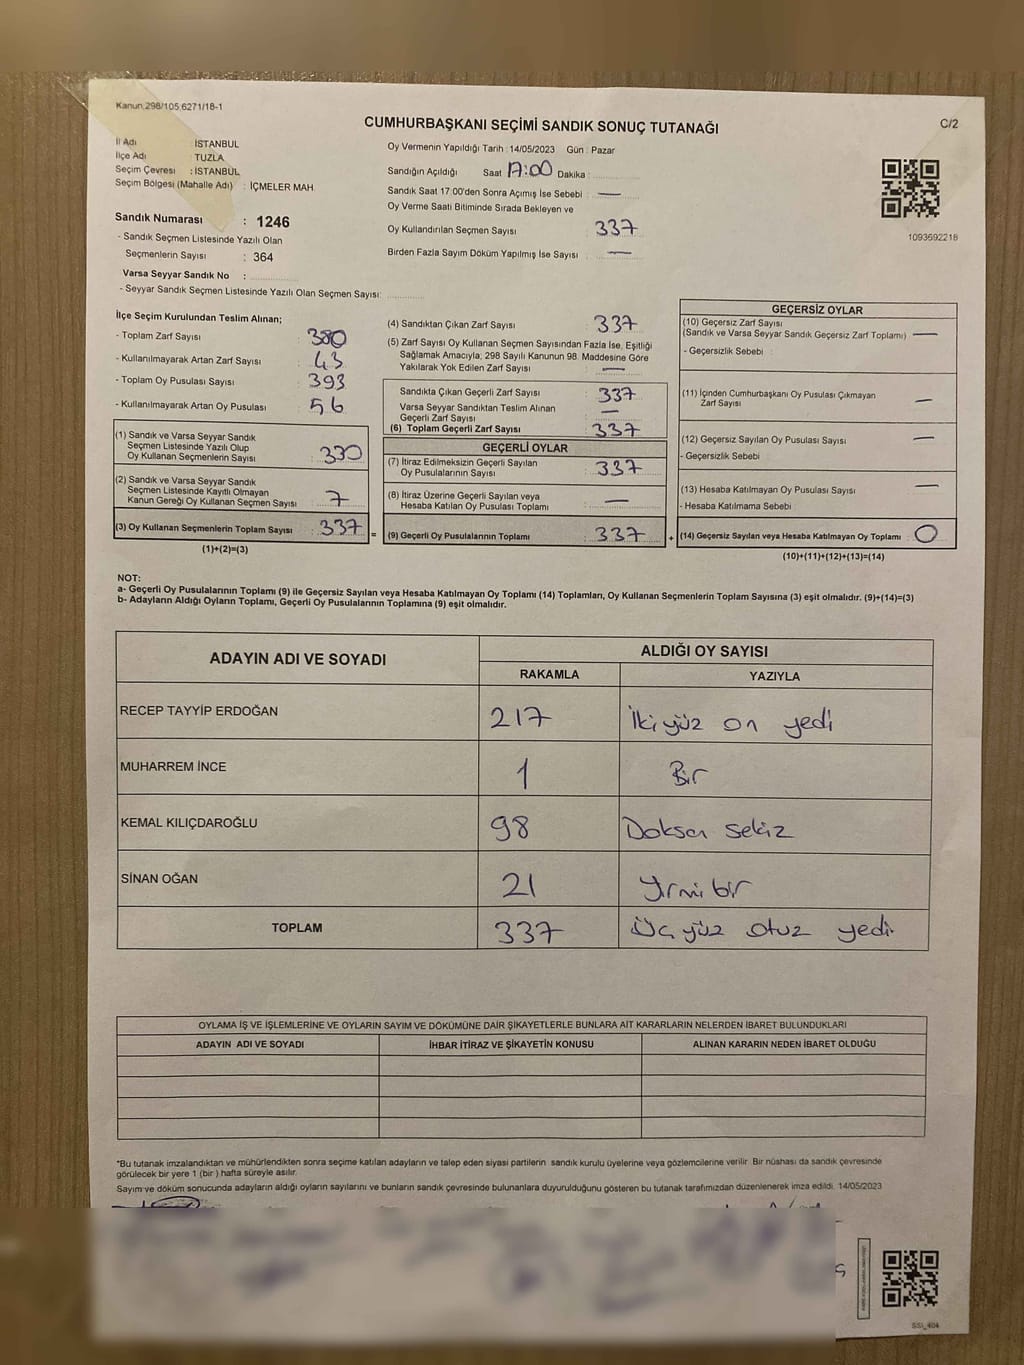 Kanun,298/105,6271/18-1
CUMHURBAŞKANI SEÇİMİ SANDIK SONUÇ TUTANAĞI
C/2
İl Adı : İSTANBUL
İlçe Adı : TUZLA
Seçim Çevresi : İSTANBUL
Seçim Bölgesi (Mahalle Adı) : İÇMELER MAH
Sandık Numarası : 1246
- Sandık Seçmen Listesinde Yazılı Olan
Seçmenlerin Sayısı : 364
Varsa Seyyar Sandık No :
- Seyyar Sandık Seçmen Listesinde Yazılı Olan Seçmen Sayısı:
Oy Vermenin Yapıldığı Tarih : 14/05/2023 Gün : Pazar
Sandığın Açıldığı Saat 17:00 Dakika :
Sandık Saat 17:00'den Sonra Açımış İse Sebebi : —
Oy Verme Saati Bitiminde Sırada Bekleyen ve
Oy Kullandırılan Seçmen Sayısı : 337
Birden Fazla Sayım Döküm Yapılmış İse Sayısı : —
1093692218
İlçe Seçim Kurulundan Teslim Alınan;
- Toplam Zarf Sayısı : 380
- Kullanılmayarak Artan Zarf Sayısı : 43
- Toplam Oy Pusulası Sayısı : 393
- Kullanılmayarak Artan Oy Pusulası : 56
(1) Sandık ve Varsa Seyyar Sandık
Seçmen Listesinde Yazılı Olup
Oy Kullanan Seçmenlerin Sayısı : 330
(2) Sandık ve Varsa Seyyar Sandık
Seçmen Listesinde Kayıtlı Olmayan
Kanun Gereği Oy Kullanan Seçmen Sayısı : 7
(3) Oy Kullanan Seçmenlerin Toplam Sayısı : 337
(1)+(2)=(3)
(4) Sandıktan Çıkan Zarf Sayısı : 337
(5) Zarf Sayısı Oy Kullanan Seçmen Sayısından Fazla İse, Eşitliği
Sağlamak Amacıyla; 298 Sayılı Kanunun 98. Maddesine Göre
Yakılarak Yok Edilen Zarf Sayısı : —
Sandıkta Çıkan Geçerli Zarf Sayısı : 337
Varsa Seyyar Sandıktan Teslim Alınan
Geçerli Zarf Sayısı : —
(6) Toplam Geçerli Zarf Sayısı : 337
GEÇERLİ OYLAR
(7) İtiraz Edilmeksizin Geçerli Sayılan
Oy Pusulalarının Sayısı : 337
(8) İtiraz Üzerine Geçerli Sayılan veya
Hesaba Katılan Oy Pusulası Toplamı : —
= (9) Geçerli Oy Pusulalarının Toplamı : 337 +
GEÇERSİZ OYLAR
(10) Geçersiz Zarf Sayısı
(Sandık ve Varsa Seyyar Sandık Geçersiz Zarf Toplamı) : —
- Geçersizlik Sebebi
(11) İçinden Cumhurbaşkanı Oy Pusulası Çıkmayan
Zarf Sayısı : —
(12) Geçersiz Sayılan Oy Pusulası Sayısı : —
- Geçersizlik Sebebi
(13) Hesaba Katılmayan Oy Pusulası Sayısı : —
- Hesaba Katılmama Sebebi :
(14) Geçersiz Sayılan veya Hesaba Katılmayan Oy Toplamı : 0
(10)+(11)+(12)+(13)=(14)
NOT:
a- Geçerli Oy Pusulalarının Toplamı (9) ile Geçersiz Sayılan veya Hesaba Katılmayan Oy Toplamı (14) Toplamları, Oy Kullanan Seçmenlerin Toplam Sayısına (3) eşit olmalıdır. (9)+(14)=(3)
b- Adayların Aldığı Oyların Toplamı, Geçerli Oy Pusulalarının Toplamına (9) eşit olmalıdır.
ADAYIN ADI VE SOYADI
ALDIĞI OY SAYISI
RAKAMLA YAZIYLA
RECEP TAYYİP ERDOĞAN 217 İki yüz on yedi
MUHARREM İNCE 1 Bir
KEMAL KILIÇDAROĞLU 98 Doksan sekiz
SİNAN OĞAN 21 Yirmi bir
TOPLAM 337 Üç yüz otuz yedi
OYLAMA İŞ VE İŞLEMLERİNE VE OYLARIN SAYIM VE DÖKÜMÜNE DAİR ŞİKAYETLERLE BUNLARA AİT KARARLARIN NELERDEN İBARET BULUNDUKLARI
ADAYIN ADI VE SOYADI İHBAR İTİRAZ VE ŞİKAYETİN KONUSU ALINAN KARARIN NEDEN İBARET OLDUĞU
*Bu tutanak imzalandıktan ve mühürlendikten sonra seçime katılan adayların ve talep eden siyasi partilerin sandık kurulu üyelerine veya gözlemcilerine verilir. Bir nüshası da sandık çevresinde
görülecek bir yere 1 (bir ) hafta süreyle asılır.
Sayım ve döküm sonucunda adayların aldığı oyların sayılarını ve bunların sandık çevresinde bulunanlara duyurulduğunu gösteren bu tutanak tarafımızdan düzenlenerek imza edildi. 14/05/2023
SSİ_404